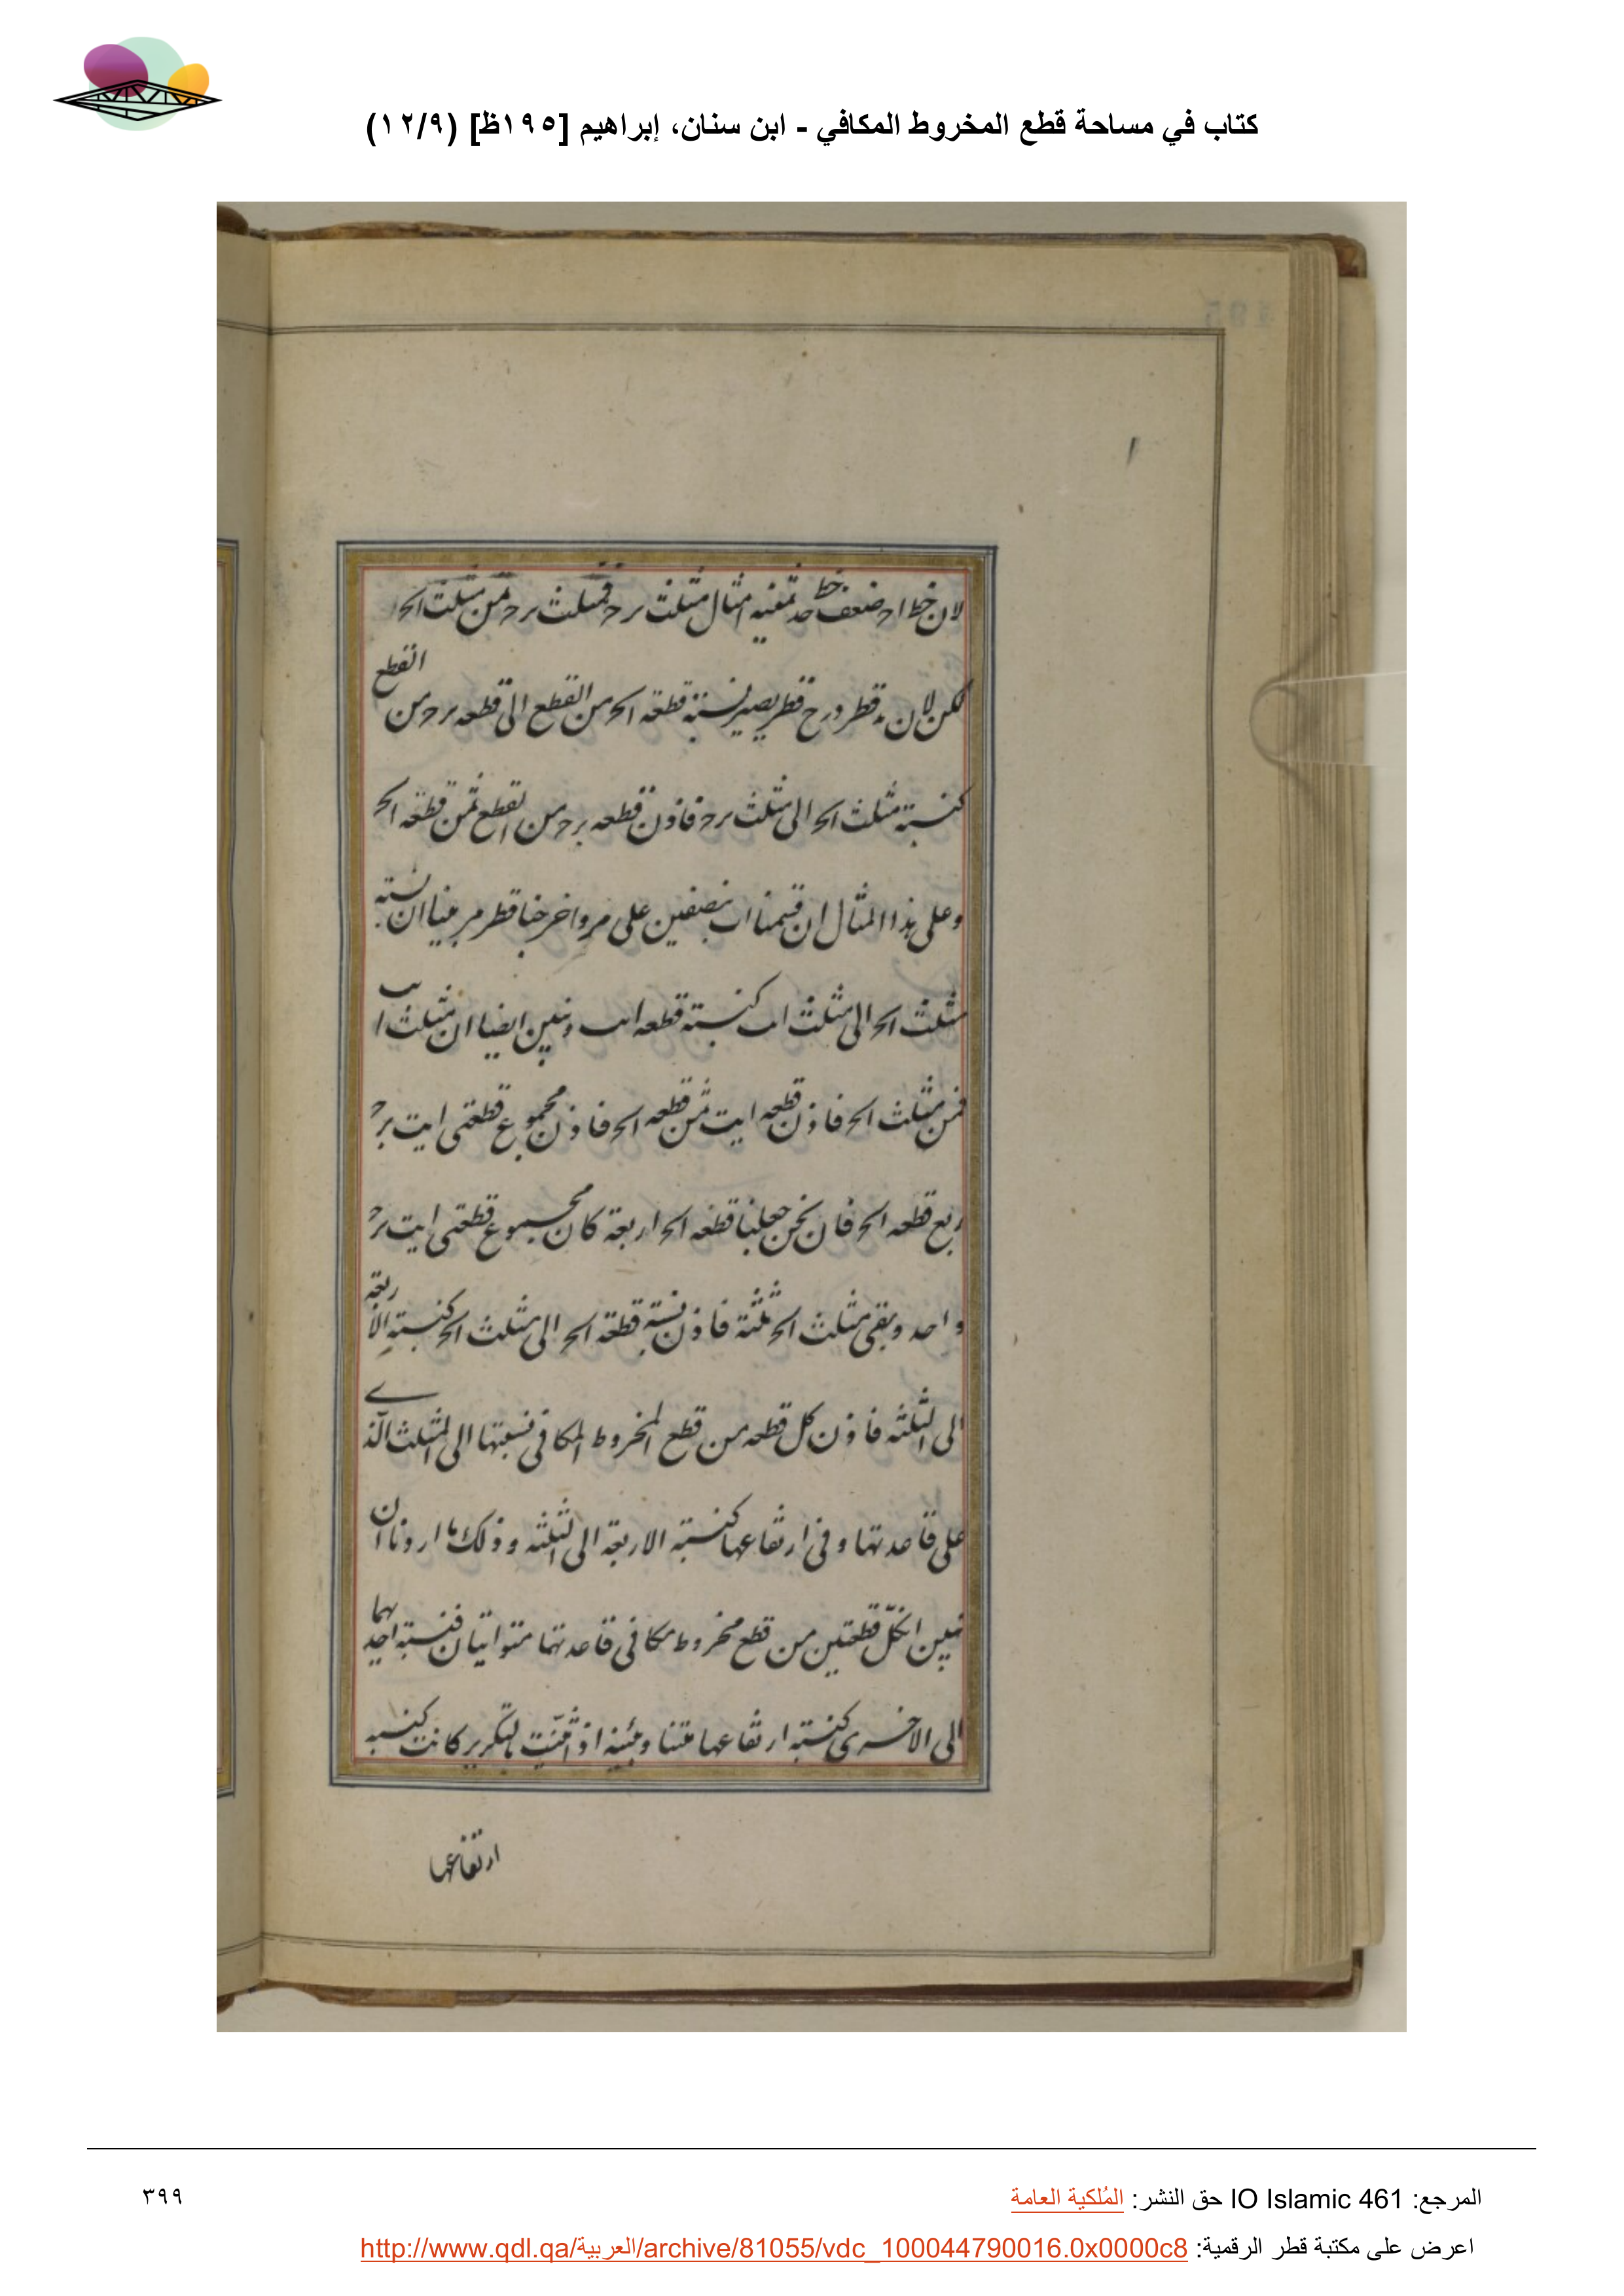 كتاب في مساحة قطع المخروط المكافي - ابن سنان، إبراهيم [١٩٥ظ] (١٢/٩)
لان خط اح ضعف خط حد ثمنيه امثال مثلث برح فمثلث برح ثمن مثلث اںح
لكن لان ه قطر و رح قطر يصير نسبة قطعة اںح من القطع الى قطعه برح من القطع
كنسبته مثلث اںح الى مثلث برح فاذن قطعه برح من القطع ثمن قطعه اںح
وعلى هذا المثال ان قسمنا اب بنصفين على م واخرجنا قطر م بينا ان نسبته
مثلث اںح الى مثلث كنسبته قطعه وتبين ايضا ان مثلث
ثمن مثلث اںح فاذن قطعه ايت ثمن قطعه اںح فاذن مجموع قطعتى ايت برح
ربع قطعه اںح فان نحن جعلنا قطعه اںح اربعة كان مجموع قطعتى ايت برح
واحد ويبقى مثلث اںح ثلثة فاذن نسبة قطعة اںح الى مثلث اںح كنسبته الاربعة
الى الثلثه فاذن كل قطعه من قطع المخروط المكافى فنسبتها الى المثلث الذے
على قاعدتها وفى ارتفاعها كنسبته الاربعة الى الثلثه وذلك ما اردنا ان
نبين انكل قطعتين من قطع مخروط مكافى قاعدتهما متوازيتان فنسبته احديهما
الى الاخرى كنسبته ارتفاعها مثناه اذ اثنيت بالتكرير كانت كنسبه
ارتفاعها
المرجع: IO Islamic 461 حق النشر: المُلكية العامة
٣٩٩
اعرض على مكتبة قطر الرقمية: http://www.qdl.qa/العربية/archive/81055/vdc_100044790016.0x0000c8